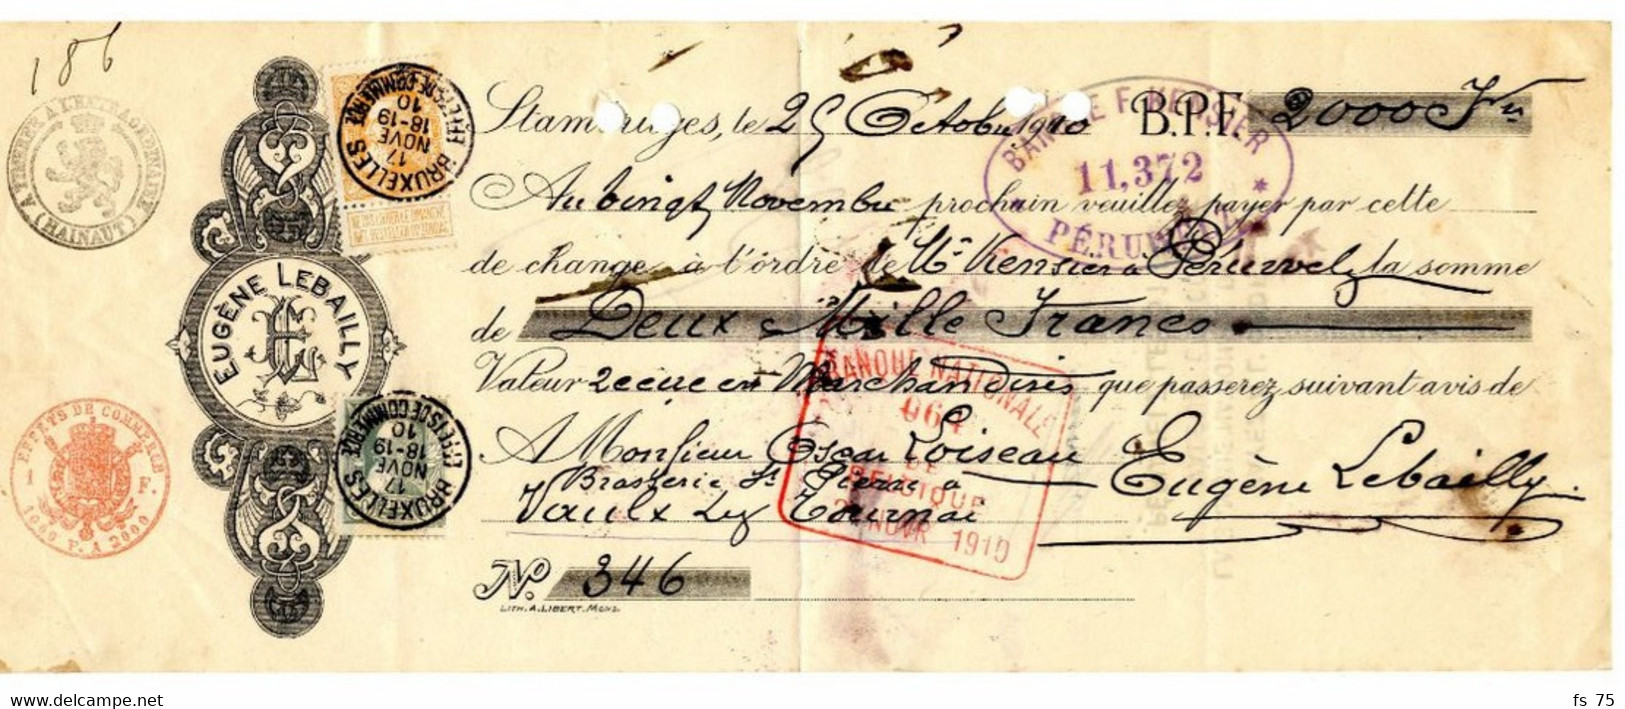 186
A TIMBRER A L'EXTRAORDINAIRE
(HAINAUT)
EUGÈNE LEBAILLY
EFFETS DE COMMERCE
1 F.
1000 F. A 2000
BRUXELLES
17
NOVE
18-19
10
EFFETS DE COMMERCE
NE PAS LIVRER LE DIMANCHE
NIET BESTELLEN OP ZONDAG
BRUXELLES
17
NOVE
18-19
10
EFFETS DE COMMERCE
Stambruges, le 25 Octobre 1910 B.P.F. 2000 Frs
BANQUE F. KENSIER
11,372
PÉRUWELZ
Au vingt Novembre prochain veuillez payer par cette
de change à l'ordre de Mr Kensier à Péruwelz la somme
de Deux Mille Francs
Valeur reçue en Marchandises que passerez suivant avis de
BANQUE NATIONALE
064
DE
BELGIQUE
NOVR 1910
A Monsieur Oscar Loiseau Eugène Lebailly.
Brasserie St Pierre à
Vaulx Lez Tournai
No. 346
LITH. A. LIBERT. MONS.
fs 75